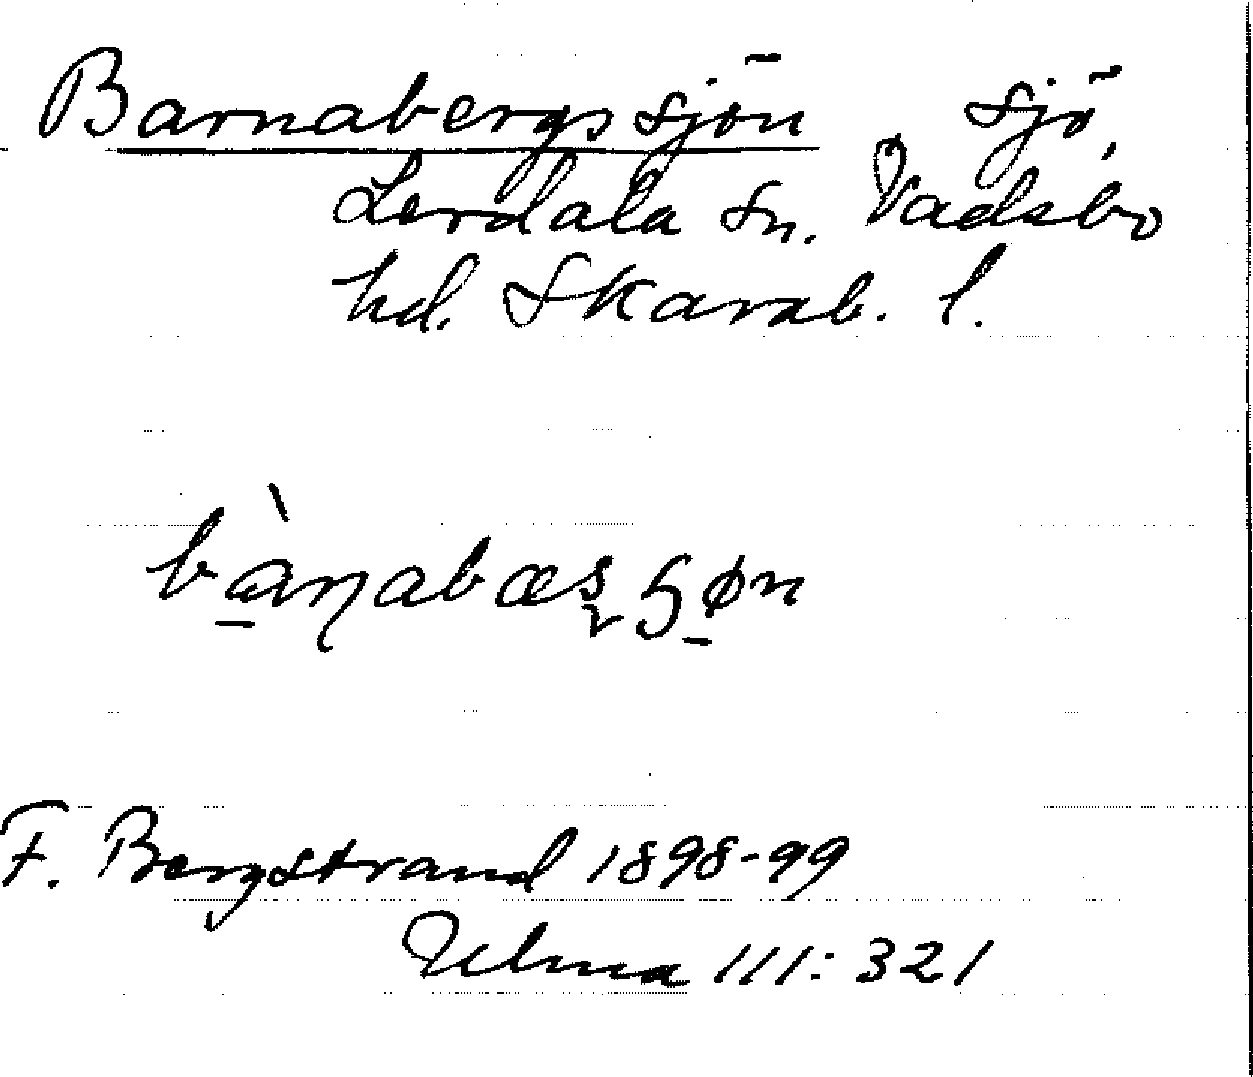 Barnabergssjön sjö,
Lerdala sn. Vadsbo
hd. Skarab. l.
bàꞃabæs ꞔøn
F. Bergstrand 1898-99
Ulma 111:321